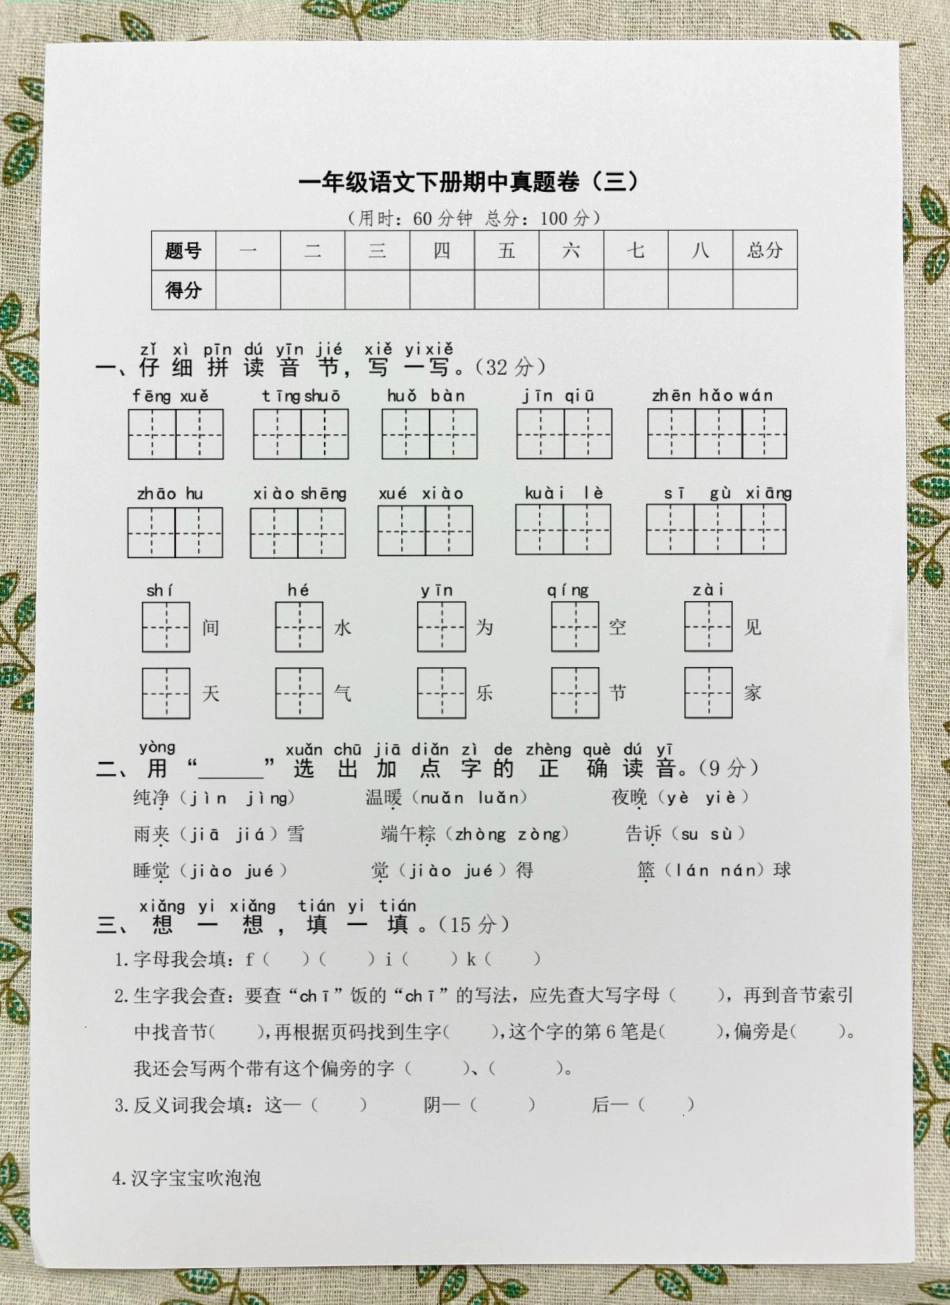 一年级语文下册期中真题卷（三）
（用时：60 分钟 总分：100 分）
题号 一 二 三 四 五 六 七 八 总分
得分
zǐ xì pīn dú yīn jié xiě yi xiě
一、仔 细 拼 读 音 节，写 一写。（32 分）
fēng xuě tīng shuō huǒ bàn jīn qiū zhēn hǎo wán
zhāo hu xiào shēng xué xiào kuài lè sī gù xiāng
shí hé yīn qíng zài
间 水 为 空 见
天 气 乐 节 家
yòng xuǎn chū jiā diǎn zì de zhèng què dú yī
二、用“_____”选 出 加 点 字 的 正 确 读 音。（9 分）
纯净（jìn jìng） 温暖（nuǎn luǎn） 夜晚（yè yiè）
雨夹（jiā jiá）雪 端午粽（zhòng zòng） 告诉（su sù）
睡觉（jiào jué） 觉（jiào jué）得 篮（lán nán）球
xiǎng yi xiǎng tián yi tián
三、想 一 想，填 一 填。（15 分）
1.字母我会填：f（ ）（ ）i（ ）k（ ）
2.生字我会查：要查“chī”饭的“chī”的写法，应先查大写字母（ ），再到音节索引
中找音节（ ），再根据页码找到生字（ ），这个字的第 6 笔是（ ），偏旁是（ ）。
我还会写两个带有这个偏旁的字（ ）、（ ）。
3.反义词我会填：这—（ ） 阴—（ ） 后—（ ）
4.汉字宝宝吹泡泡